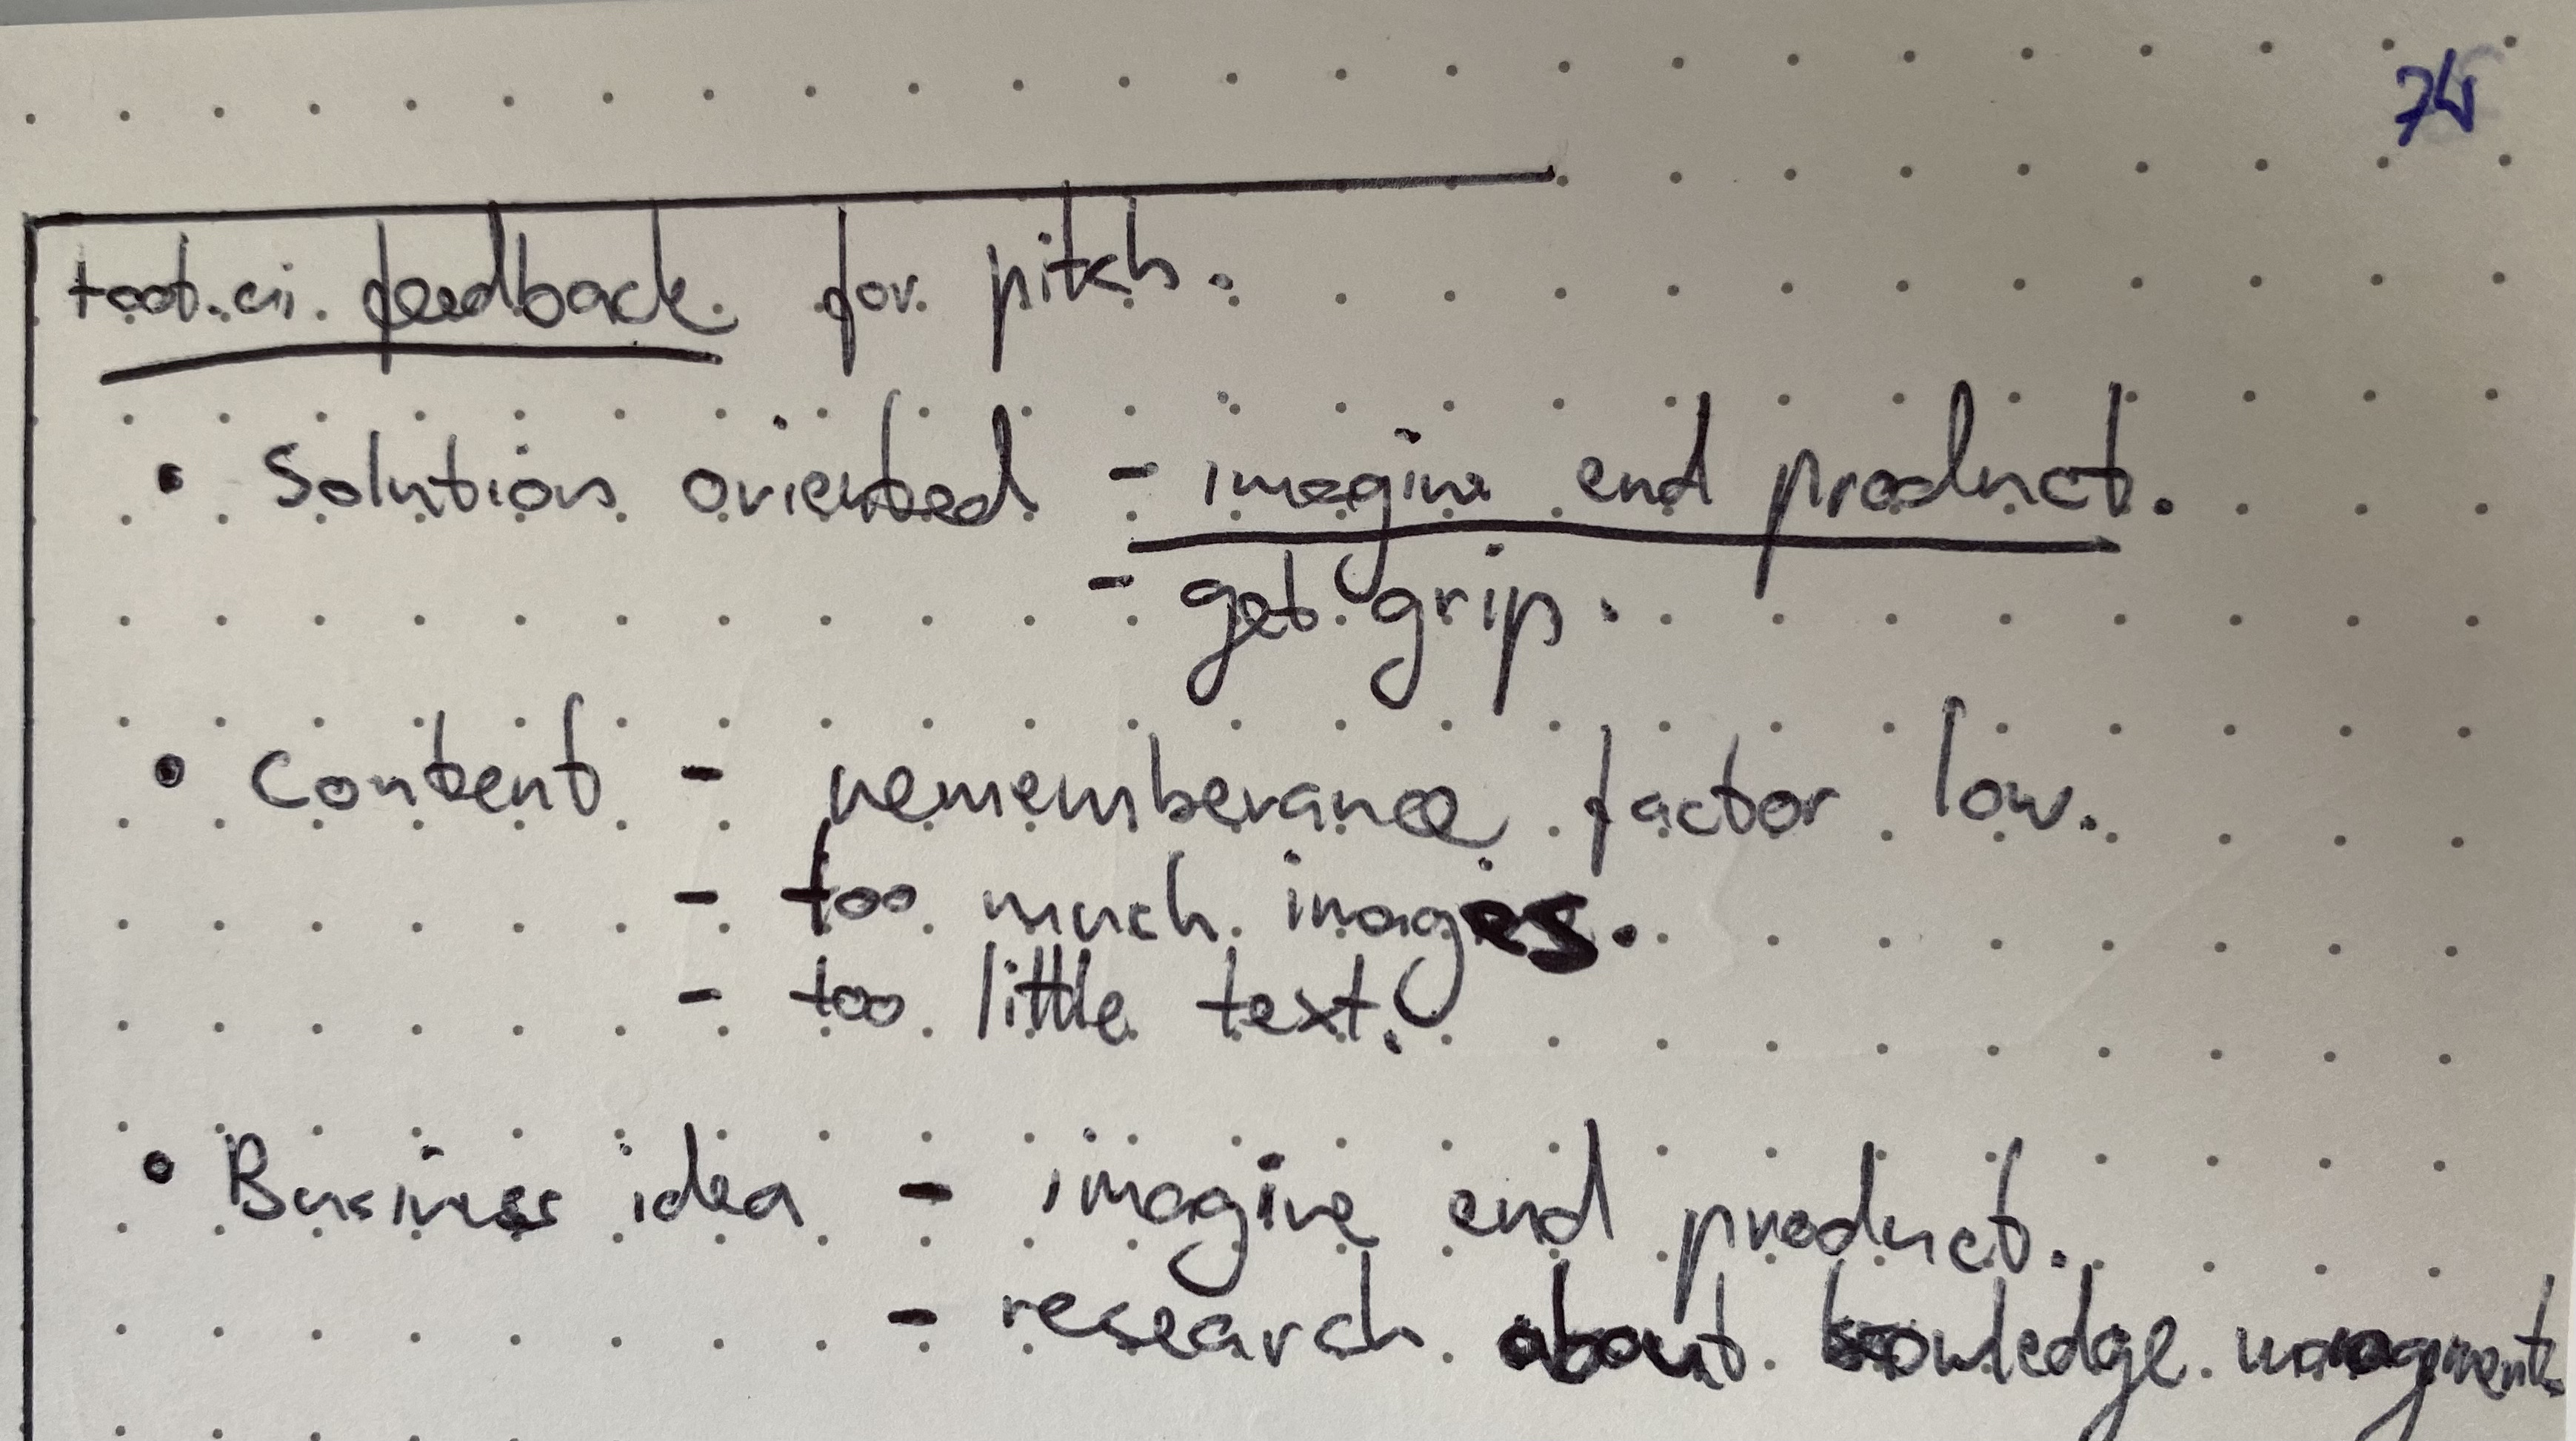 74
feedback for pitch.
• Solution oriented - imagine end product.
- get grip.
• Content - rememberance factor low.
- too much images.
- too little text.
• Business idea - imagine end product.
- research about knowledge managment.